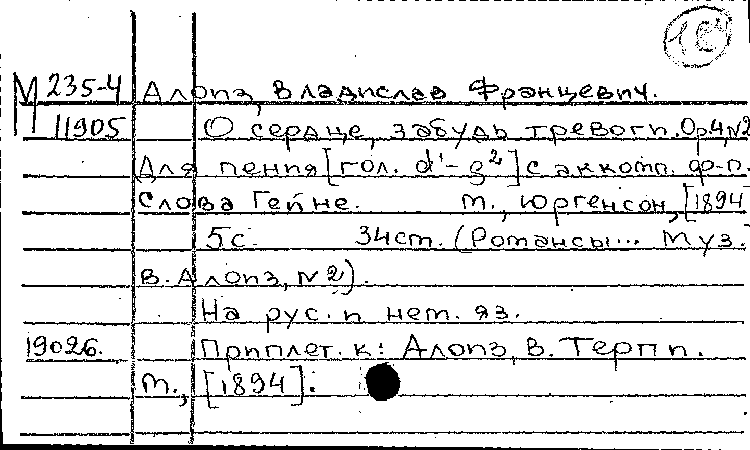 М 235-4 Алоиз, Владислав Францевич.
11905 О сердце, забудь тревоги. Op.4, N2
Для пения [гол. d¹-g²] с аккомп. ф-п.
Слова Гейне. М., Юргенсон, [1894
5с. 34см. (Романсы... муз.
В. Алоиз, N2).
На рус. и нем. яз.
19026. Приплет. к: Алоиз, В. Терпи.
М., [1894].